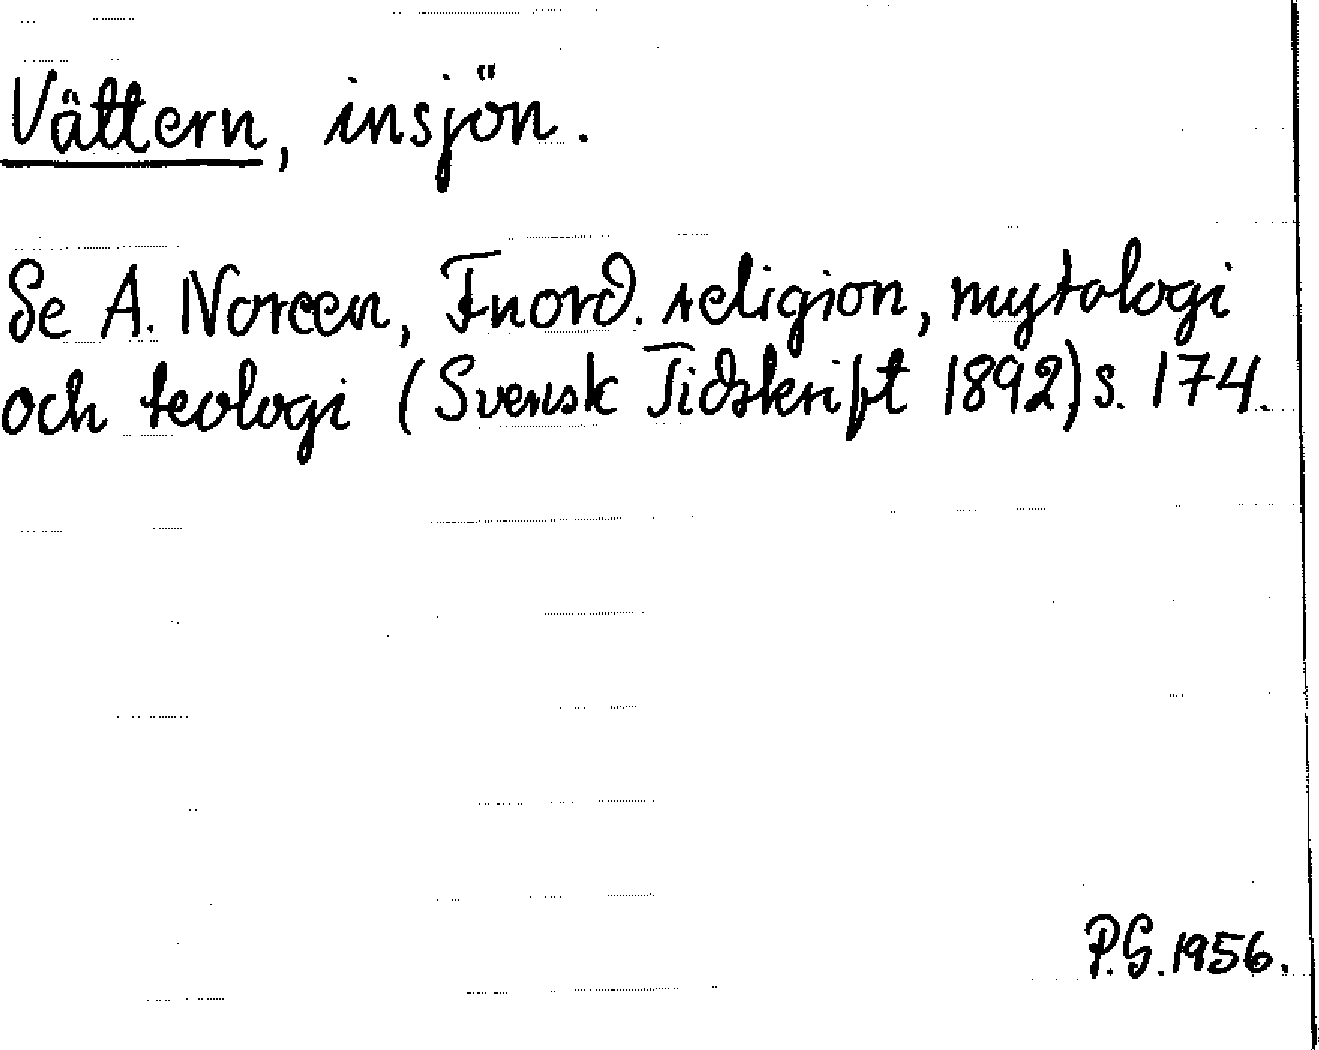 Vättern, insjön.
Se A. Noreen, Fnord. religion, mytologi
och teologi (Svensk Tidskrift 1892) s. 174.
P.G. 1956.